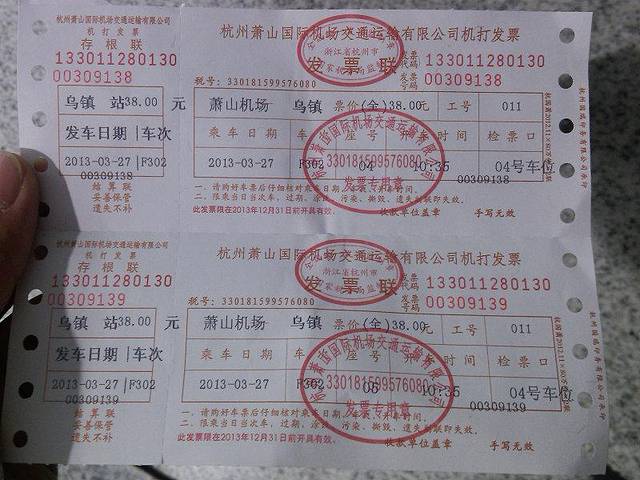 杭州萧山国际机场交通运输有限公司
机 打 发 票
存 根 联
133011280130
00309138
乌镇 站38.00 元
发车日期 |车次
2013-03-27 |F302
00309138
结 算 联
妥善保管
遗失不补
杭州萧山国际机场交通运输有限公司机打发票
浙江省杭州市
发 票 联
发票代码 133011280130
发票号码 00309138
税号: 330181599576080
萧山机场 乌镇 票价(全)38.00元 工号 011
乘车日期 车 座号 时间 检票口
2013-03-27 F302 04 10:35 04号车位
330181599576080
发票专用章
00309138
一、请购好车票后仔细核对乘车日期、 开车时间。
二、限乘当日当次车,过期、涂 、污染、撕毁、遗失 联即失效。
此发票限在2013年12月31日前开具有效。 收款单位盖章 手写无效
杭州萧山国际机场交通运输有限公司
机 打 发 票
存 根 联
133011280130
00309139
乌镇 站38.00 元
发车日期 |车次
2013-03-27 |F302
00309139
结 算 联
妥善保管
遗失不补
杭州萧山国际机场交通运输有限公司机打发票
浙江省杭州市
发 票 联
发票代码 133011280130
发票号码 00309139
税号: 330181599576080
萧山机场 乌镇 票价(全)38.00元 工号 011
乘车日期 车 座号 时间 检票口
2013-03-27 F302 10:35 04号车位
330181599576080
发票专用章
00309139
一、请购好车票后仔细核对乘车日期、 开车时间。
二、限乘当日当次车,过期、涂 、污染、撕毁、遗失 联即失效。
此发票限在2013年12月31日前开具有效。 收款单位盖章 手写无效